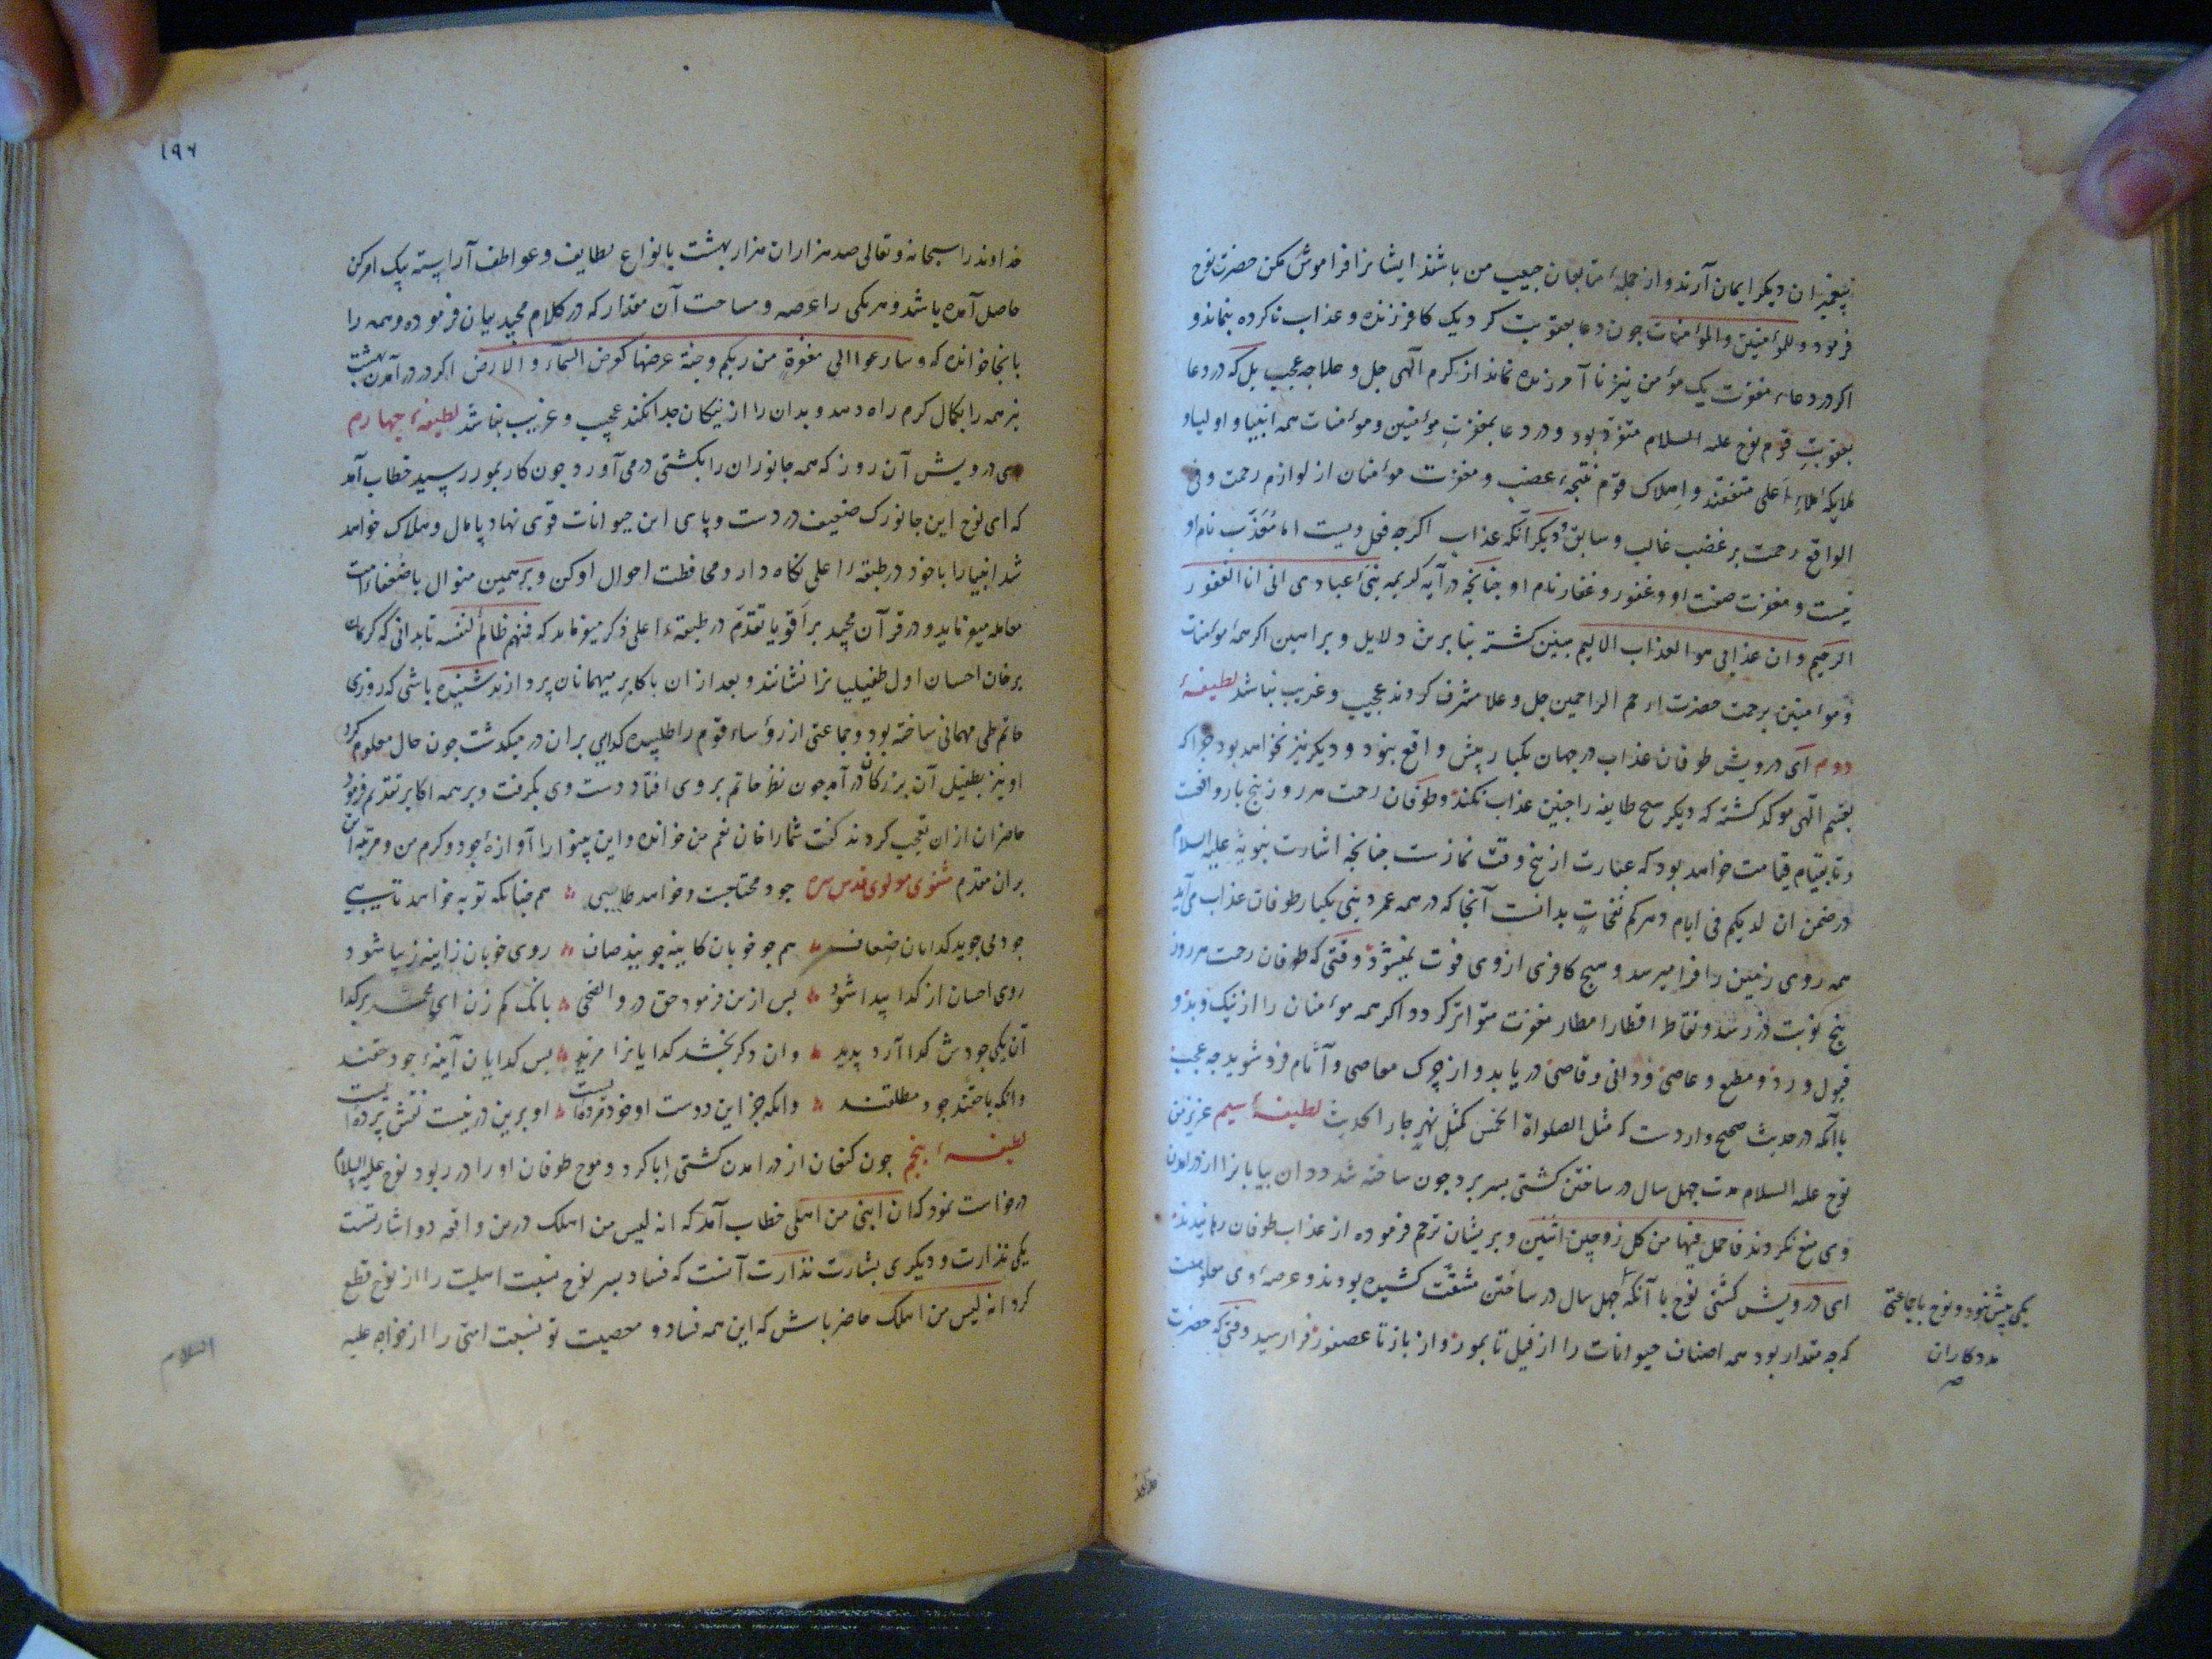 پیغمبران دیکر ایمان آرند و از جملهٔ متابعان حبیب من باشند ایشانرا فراموش مکن حضرت نوح
فرمود و للمؤمنین والمؤمنات جون دعا بعقوبت کرد یک کافر زنده و عذاب ناکرده نماند و
اکر در دعاء مغفرت یک مؤمن نیز نا آمرزیده نماند از کرم الهی جل و علا جه عجب بل که در دعا
بعقوبتِ قوم نوح علیه السلام متفرّد بود و در دعا بمغفرتِ مؤمنین و مؤمنات همه انبیا و اولیا و
ملایکهٔ ملاءِ اعلی متفقند و اهلاک قوم نتیجهٔ غضب و مغفرت مؤمنان از لوازم رحمت و فی
الواقع رحمت بر غضب غالب و سابق و دیکر آنکه عذاب اکرجه فعل ویست اما مُعَذِّب نام او
نیست و مغفرت صفت او و غفور و غفار نام او جنانجه در آیه کریمه نبّئ عبادی انی انا الغفور
الرحیم و ان عذابی هو العذاب الالیم مبین کشته بنا برین دلایل و براهین اکر همهٔ مؤمنات
و مؤمنین برحمت حضرت ارحم الراحمین جل و علا مشرف کردند عجیب و غریب نباشد لطیفهٔ
دوم ای درویش طوفان عذاب در جهان یکبار بیش واقع نبود و دیکر نیز نخواهد بود جرا که
بقسم الهی موکد کشته که دیکر هیج طایفه را جنین عذاب نکند و طوفان رحمت هر روز پنج بار واقعست
و تا بقیام قیامت خواهد بود که عبارت از پنج وقت نمازست جنانجه اشارت نبویّه علیه السلام
در ضمن ان لدیکم فی ایام دهرکم نفحاتٍ بدانست آنجا که در همه عمر دنیی یکبار طوفان عذاب می‌آید
همه روی زمین را فرا میرسد و هیج کافری از وی فوت نمیشود وقتی که طوفان رحمت هر روز
پنج نوبت در رسد و نقاط اقطار امطار مغفرت متواتر کردد اکر همه مؤمنان را از نیک و بد و
قبول و رد و مطیع و عاصی و دانی و قاصی در یابد و از جرک معاصی و آثام فرو شوید جه عجب
با آنکه در حدیث صحیح واردست که مثل الصلواة الخمس کمثل نهرٍ جار الحدیث لطیفهٔ سیم عزیز من
نوح علیه السلام مدت جهل سال در ساختن کشتی بسر برد جون ساخته شد ددان بیابانرا از در آمدن
وی منع نکردند فاحمل فیها من کل زوجین اثنین و بریشان ترحم فرموده از عذاب طوفان رهانیدند
ای درویش کشتی نوح با آنکه جهل سال در ساختن مشقّت کشیده بودند و عرصهٔ وی معلومست
که جه مقدار بود همه اصناف حیوانات را از فیل تا بمور و از باز تا عصفور فرا رسید وقتی که حضرت
یکی بیش نبود و نوح با جماعتی
مددکاران
صح
خداوند
١٩٦
خداوند را سبحانه و تعالی صد هزاران هزار بهشت بانواع لطایف و عواطف آراسته بیک امر کن
حاصل آمده باشد و هر یکی را عرصه و مساحت آن مقدار که در کلام مجید بیان فرموده و همه را
بانجا خوانده که و سارعوا الی مغفرةٍ من ربکم و جنة عرضها کعرض السمآء و الارض اکر در در آمدن بهشت
نیز همه را بکمال کرم راه دهد و بدان را از نیکان جدا نکند عجیب و غریب نباشد لطیفهٔ چهارم
ای درویش آن روز که همه جانوران را بکشتی در می آورد جون کار بمور رسید خطاب آمد
که ای نوح این جانورک ضعیف در دست و پای این حیوانات قوی نهاد پامال و هلاک خواهد
شد انبیا را با خود در طبقهٔ اعلی نکاه دار و محافظت احوال او کن و بر همین منوال با ضعفاء امت
معامله میفرماید و در قرآن مجید بر اقویا تقدّم در طبقهٔ اعلی ذکر میفرماید که فمنهم ظالمٌ لنفسه تا بدانی که کریمان
بر خان احسان اول طفیلیانرا نشانند و بعد از آن باکابر میهمانان پردازند شنیده باشی که روزی
حاتم طی مهمانی ساخته بود و جماعتی از رؤساء قوم را طلبیده کدایی بر ان در میکذشت جون حال معلوم کرد
او نیز بطفیل آن بزرکان در آمد جون نظر حاتم بر وی افتاد دست وی بکرفت و بر همه اکابر تقدیم فرمود
حاضران از ان تعجب کردند کفت شما را خان نعم من خوانده و این بینوا را آوازهٔ جود و کرم من و مرتبه این
بر ان مقدم مثنوی مولوی قدس سره جود محتاجست و خواهد طالبی ؞ هم جنانکه توبه خواهد تایبی
جود می جوید کدایان ضعاف ؞ هم جو خوبان کاینه جویند صاف ؞ روی خوبان زاینه زیبا شود
روی احسان از کدا پیدا شود ؞ بس ازین فرمود حق در و الضحی ؞ بانک کم زن ای محمد بر کدا
آن یکی جودش کدا آرد پدید ؞ وان دکر بخشد کدایانرا مزید ؞ بس کدایان آینهٔ جود حقند
وانکه با حقند جود مطلقند ؞ وانکه جز این دوست او خود مرده‌ایست ؞ او برین در نیست نقش پرده‌ایست
لطیفهٔ پنجم جون کنعان از در آمدن کشتی ابا کرد و موج طوفان او را در ربود نوح علیه السلام
درخواست نمود که ان ابنی من اهلی خطاب آمد که انه لیس من اهلک درین واقعه دو اشارتست
یکی نذارت و دیکری بشارت نذارت آنست که فساد بسر نوح نسبت اهلیت را از نوح قطع
کرد انه لیس من اهلک حاضر باش که این همه فساد و معصیت تو نسبت امتی را از خواجه علیه
السلام